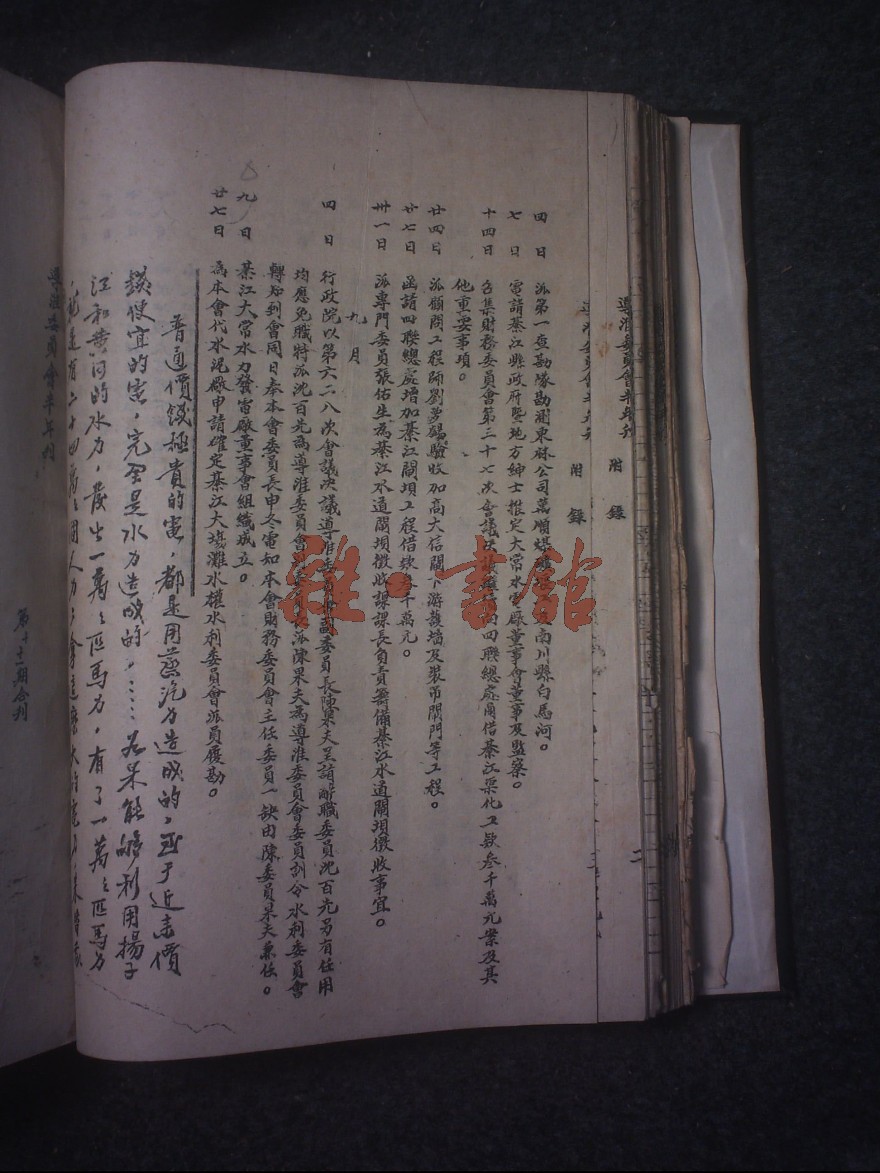 導淮委員會半年刊　附錄　二
導淮委員會半年刊　附錄　三
四日　派第一查勘隊勘測東林公司萬順煤 南川縣白馬河。
七日　電請綦江縣政府暨地方紳士推定大常水電廠董事會董事及監察。
十四日　召集財務委員會第三十七次會議 四聯總處 借綦江渠化工款叁千萬元業及其
他重要事項。
廿四日　派顧問工程師劉夢錫驗收加高大信閘下游護墙及裝吊閘門等工程。
廿七日　函請四聯總處增加綦江閘壩工程借款 千萬元。
卅一日　派專門委員張佑生為綦江水道閘壩徵收課課長負責籌備綦江水道閘壩徵收事宜。
九月
四日　行政院以第六二八次會議決議導淮委員會副委員長陳果夫呈請辭職委員沈百先另有任用
均應免職特派沈百先為導淮委員會 派陳果夫為導淮委員會委員訓令水利委員會
轉知到會同日奉本會委員長申冬電知本會財務委員會主任委員一缺由陳委員果夫兼任。
九日　綦江大常水力發電廠董事會組織成立。
廿七日　為本會代水泥廠申請確定綦江大場灘水權水利委員會派員履勘。
普通價錢極貴的電，都是用蒸汽力造成的，至于近來價
錢便宜的電，完全是水力造成的，……若果能够利用揚子
江和黃河的水力，發出一萬々匹馬力，有了一萬々匹馬力
，就是有二十四萬々個人力，
導淮委員會半年刊
第 期合刊
雜·書館